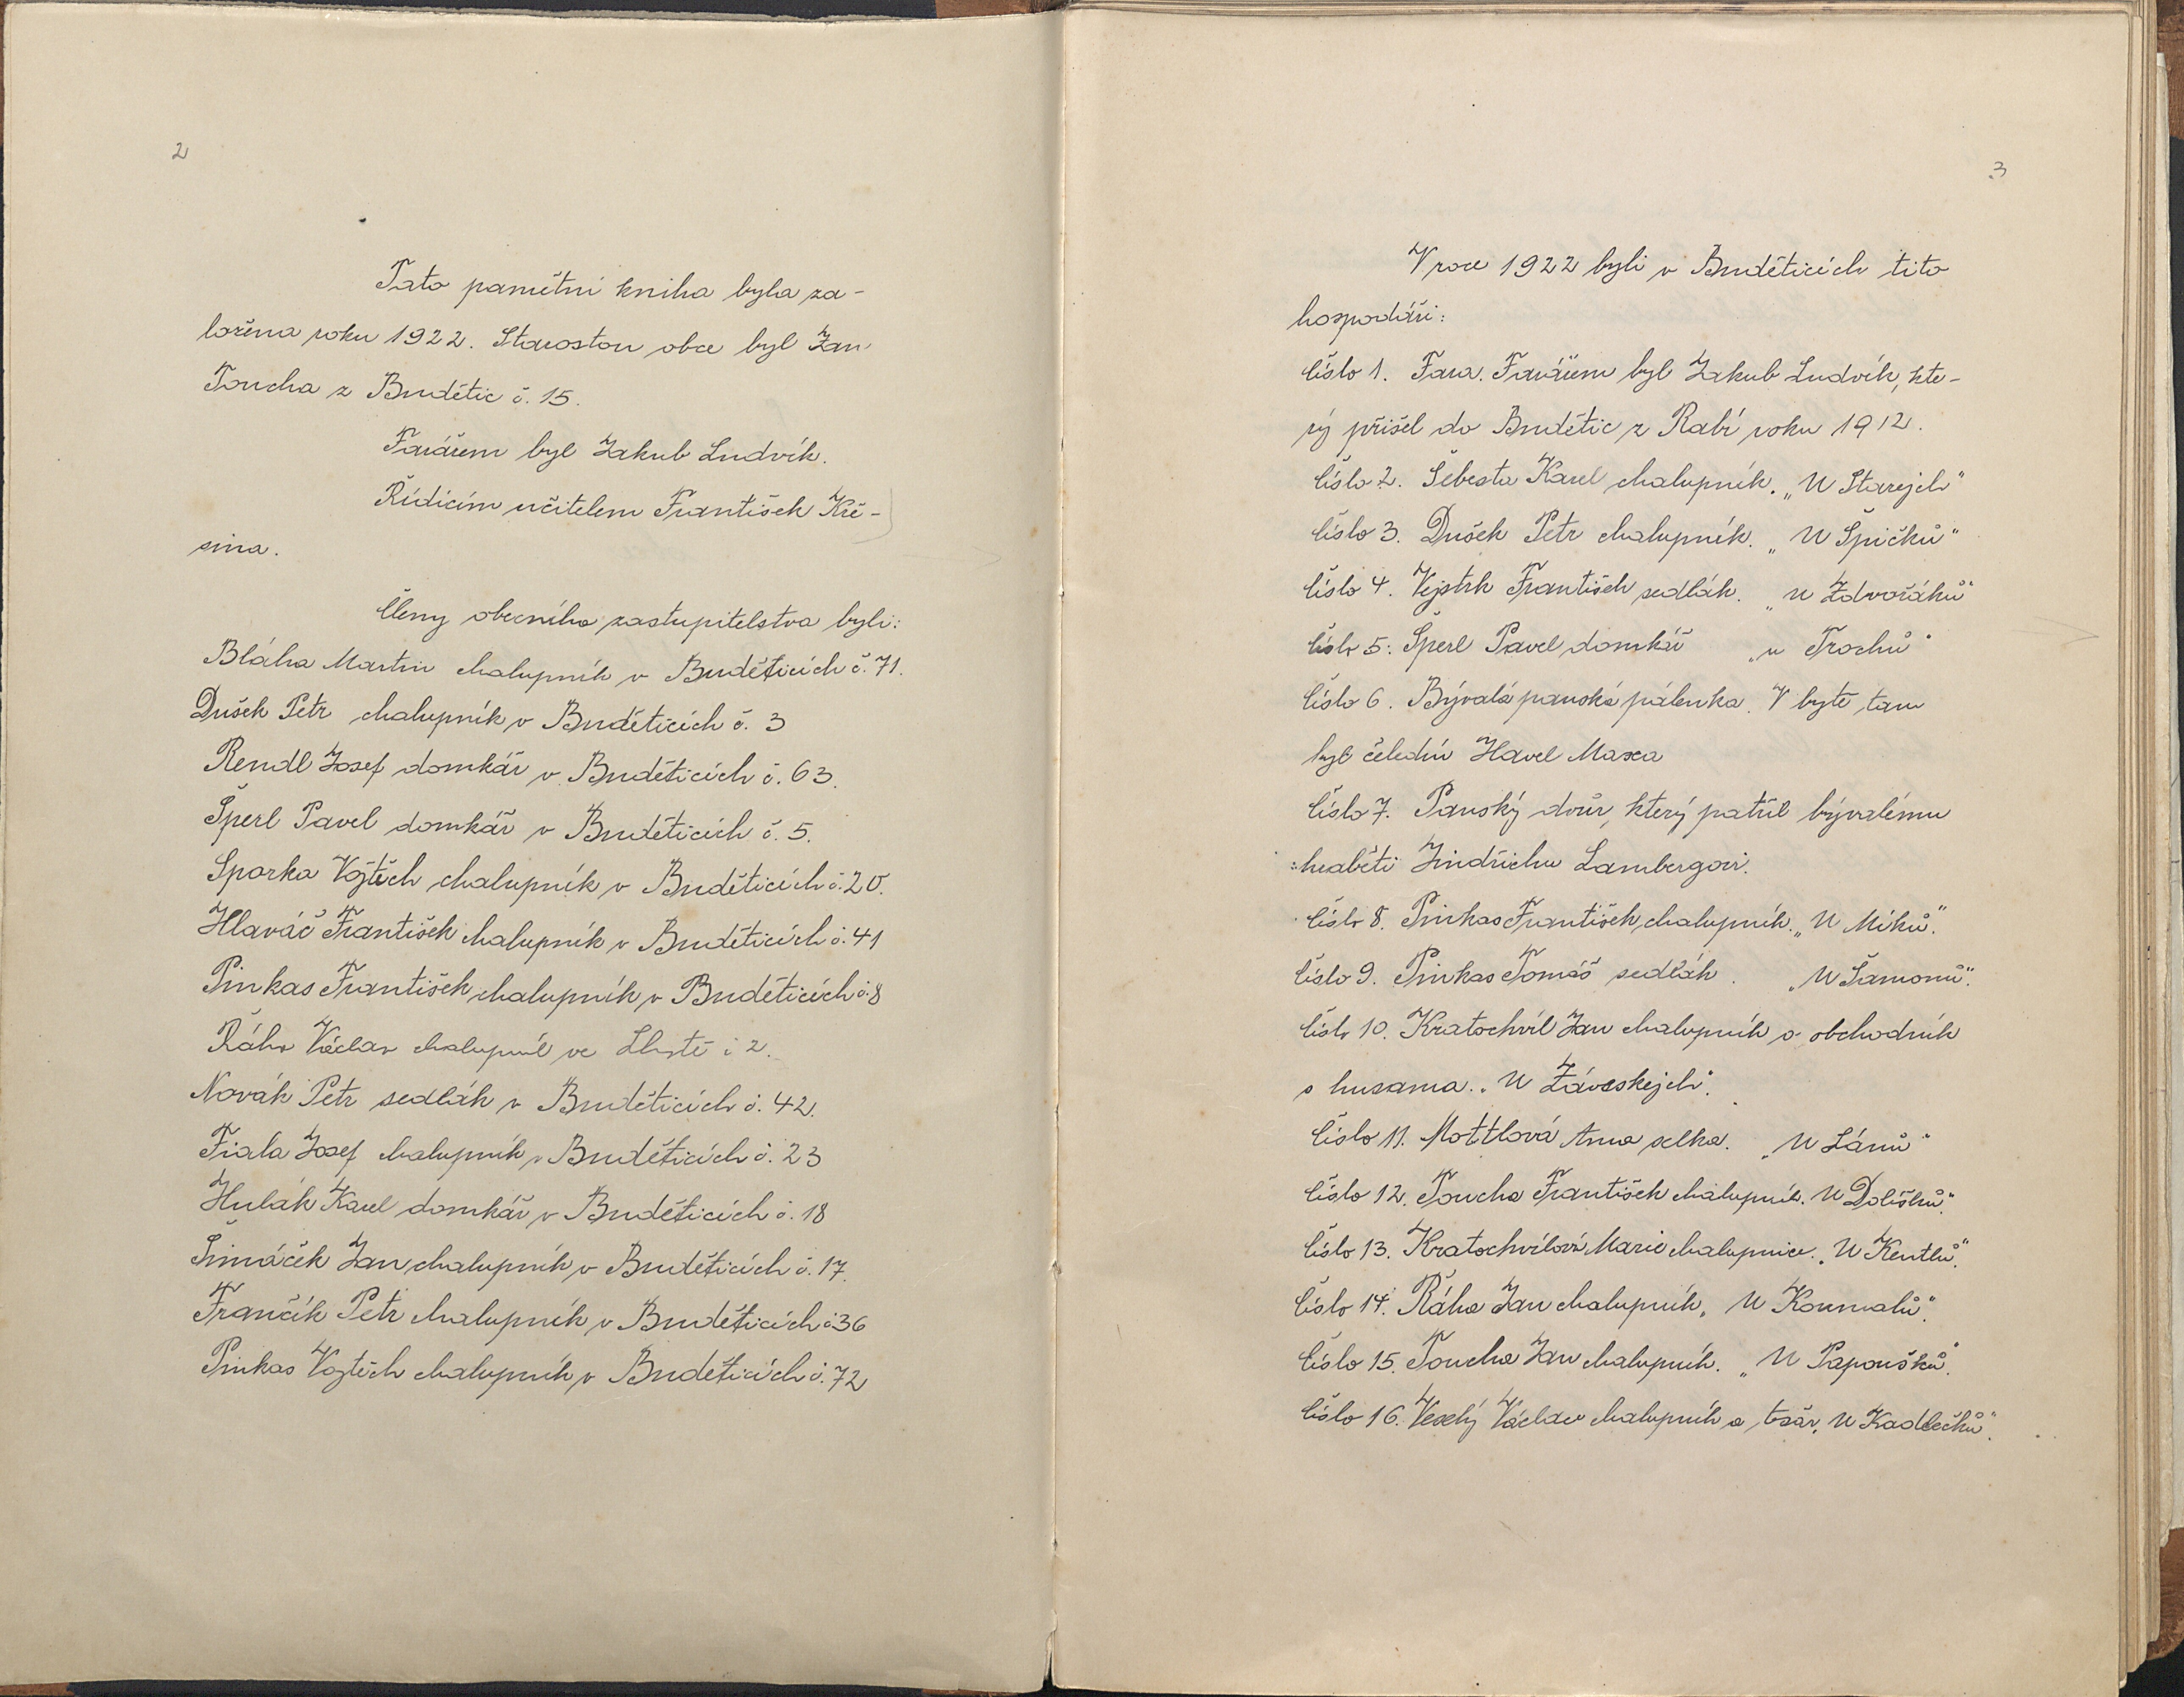 2
Tato pamětní kniha byla za-
ložena roku 1922. Starostou obce byl Jan
Toucha z Budětic č. 15.
Farářem byl Jakub Ludvík.
Řídícím učitelem František Kře-
sina.
Členy obecního zastupitelstva byli:
Bláha Martin chalupník v Buděticích č. 71.
Dušek Petr chalupník v Buděticích č. 3
Rendl Josef domkář v Buděticích č. 63.
Šperl Pavel domkář v Buděticích č. 5.
Sporka Vojtěch chalupník v Buděticích č. 20.
Hlaváč František chalupník v Buděticích č. 41
Pinkas František chalupník v Buděticích č. 8
Řáha Václav chalupník ve Lhotě č 2.
Novák Petr sedlák v Buděticích č. 42.
Fiala Josef chalupník v Buděticích č. 23
Hulák Karel domkář v Buděticích č. 18
Šimáček Jan chalupník v Buděticích č. 17.
Frančík Petr chalupník v Buděticích č 36
Pinkas Vojtěch chalupník v Buděticích č. 72
3
V roce 1922 byli v Buděticích tito
hospodáři:
Číslo 1. Fara. Farářem byl Jakub Ludvík, kte-
rý přišel do Budětic z Rabí roku 1912.
Číslo 2. Šebesta Karel chalupník. „U Starejch"
Číslo 3. Dušek Petr chalupník. „U Špičků"
Číslo 4. František sedlák. „u Zdvořáků"
Číslo 5. Šperl Pavel domkář „u Trochů"
Číslo 6. Bývalá panská pálenka. V bytě tam
byl čeledín Havel Maxa
Číslo 7. Panský dvůr, který patřil bývalému
hraběti Jindřichu Lambergovi.
Číslo 8. Pinkas František, chalupník. „U Míků".
Číslo 9. Pinkas Tomáš sedlák. „U Šamonů".
Číslo 10. Kratochvíl Jan chalupník a obchodník
s husama. „U Záveskejch".
Číslo 11. Mottlová Anna selka. „U Lánů"
Číslo 12. Toucha František chalupník. U Dolíšků".
Číslo 13. Kratochvílová Marie chalupnice. „U Kentlů".
Číslo 14. Řáha Jan chalupník. „U Koumalů".
Číslo 15. Toucha Jan chalupník. „U Papoušků".
Číslo 16. Veselý Václav chalupník a tesař, „U Kadlečků".